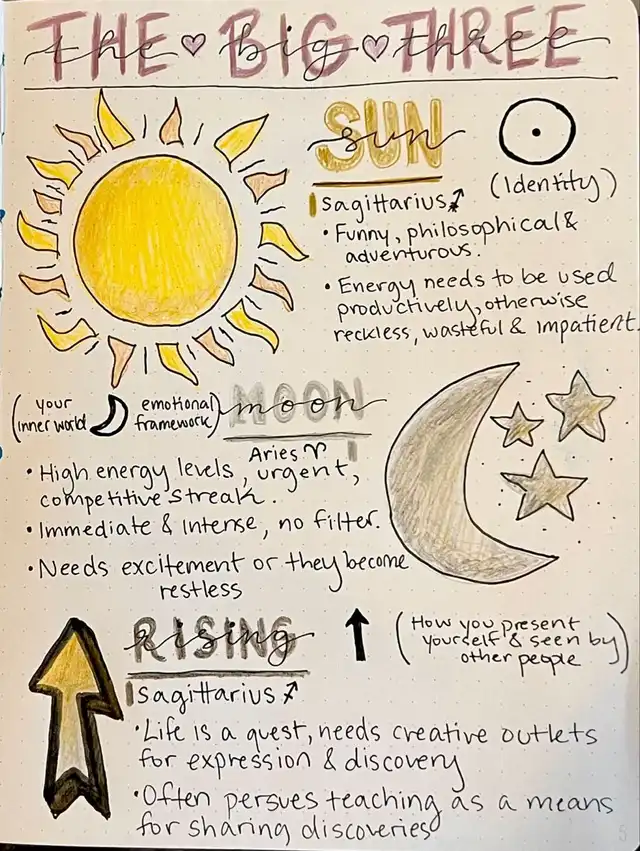 THE ♡ BIG ♡ THREE
the big three
SUN
sun
(Identity)
Sagittarius ♐
• Funny, philosophical &
adventurous.
• Energy needs to be used
productively, otherwise
reckless, wasteful & impatient.
(your
inner world
emotional
framework)
MOON
moon
Aries ♈
• High energy levels, urgent,
competitive streak.
• Immediate & intense, no filter.
• Needs excitement or they become
restless
RISING
rising
(How you present
yourself & seen by
other people)
Sagittarius ♐
• Life is a quest, needs creative outlets
for expression & discovery
• Often persues teaching as a means
for sharing discoveries
5